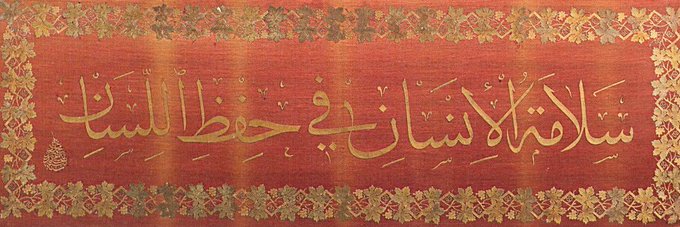 سَلَامَةُ الْإِنْسَانِ فِي حِفْظِ اللِّسَانِ